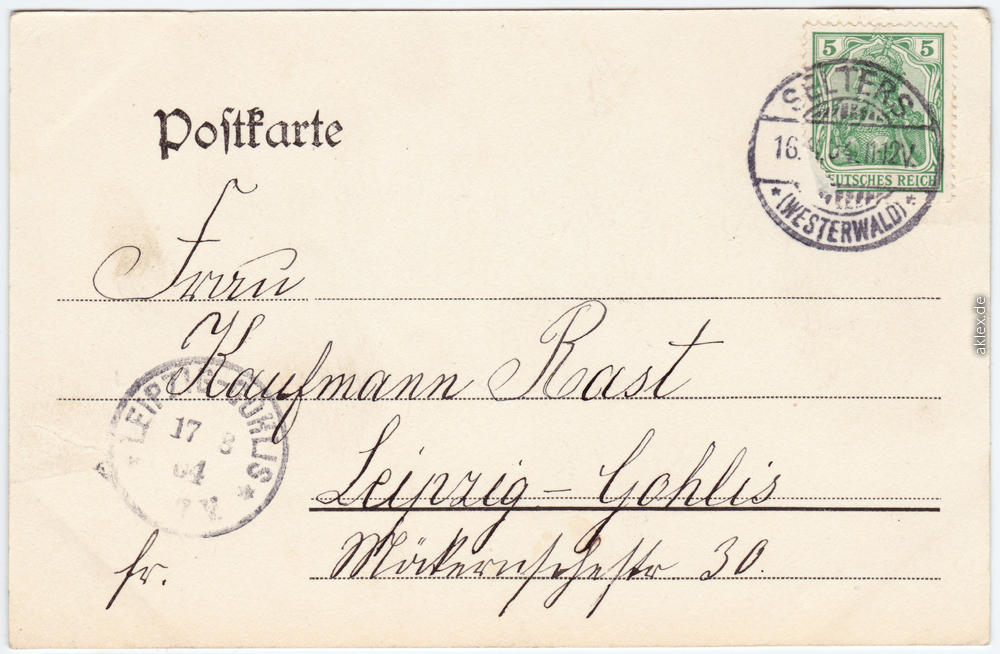 Postkarte
5 5
DEUTSCHES REICH
SELTERS
16. 04. 11-12V.
* (WESTERWALD) *
Frau
Kaufmann Rast
Leipzig-Gohlis
Möckernschestr 30.
fr.
* LEIPZIG-GOHLIS *
17 8
04
7 V.
aklex.de